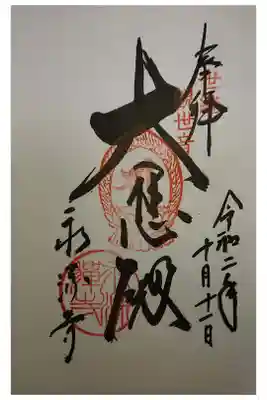 奉拝
令和二年
十月十一日
大悲殿
永源寺